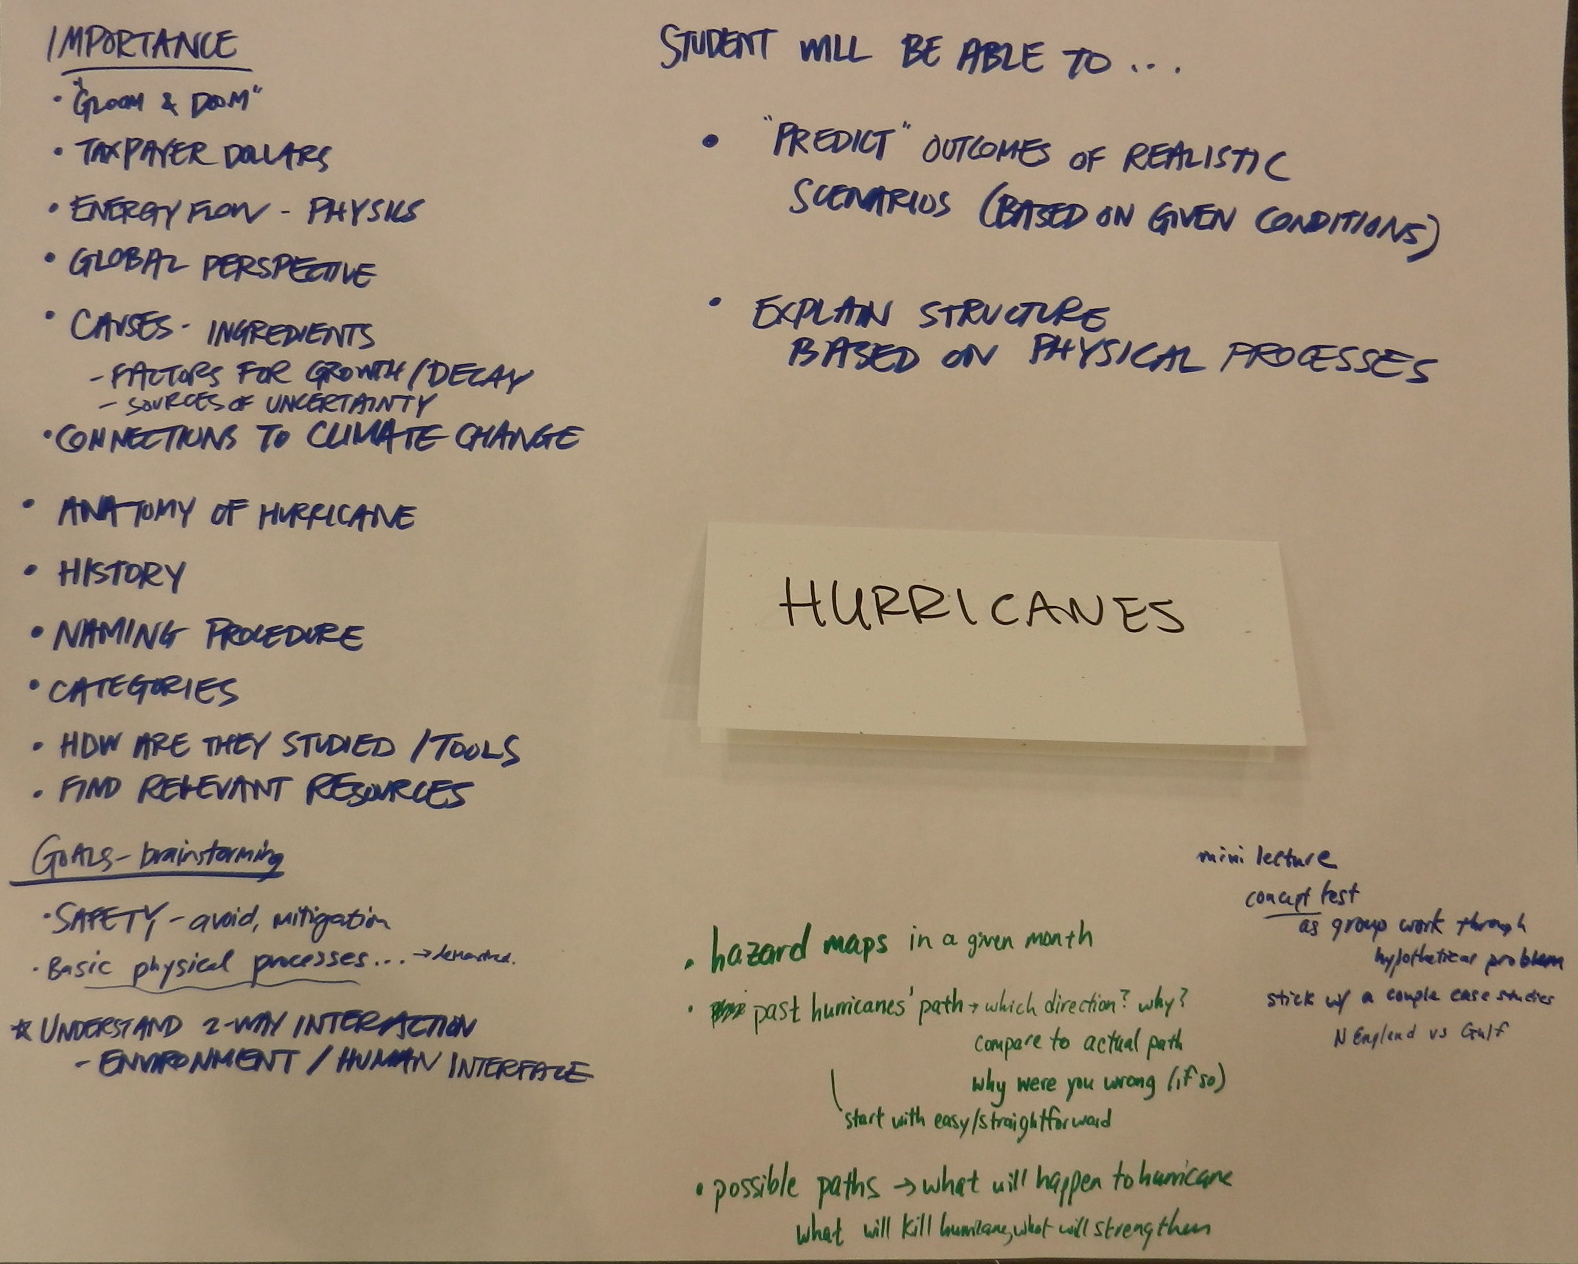 IMPORTANCE
• "GLOOM & DOOM"
• TAXPAYER DOLLARS
• ENERGY FLOW - PHYSICS
• GLOBAL PERSPECTIVE
• CAUSES - INGREDIENTS
- FACTORS FOR GROWTH/DECAY
- SOURCES OF UNCERTAINTY
• CONNECTIONS TO CLIMATE CHANGE
• ANATOMY OF HURRICANE
• HISTORY
• NAMING PROCEDURE
• CATEGORIES
• HOW ARE THEY STUDIED / TOOLS
• FIND RELEVANT RESOURCES
GOALS - brainstorming
• SAFETY - avoid, mitigation
• Basic physical processes... →
* UNDERSTAND 2-WAY INTERACTION
- ENVIRONMENT / HUMAN INTERFACE
STUDENT WILL BE ABLE TO ...
• "PREDICT" OUTCOMES OF REALISTIC
SCENARIOS (BASED ON GIVEN CONDITIONS)
• EXPLAIN STRUCTURE
BASED ON PHYSICAL PROCESSES
HURRICANES
• hazard maps in a given month
• past hurricanes' path → which direction? why?
compare to actual path
why were you wrong (if so)
start with easy/straightforward
• possible paths → what will happen to hurricane
what will kill hurricane, what will strengthen
mini lecture
concept test
as group work through
hypothetical problem
stick w/ a couple case studies
N England vs Gulf